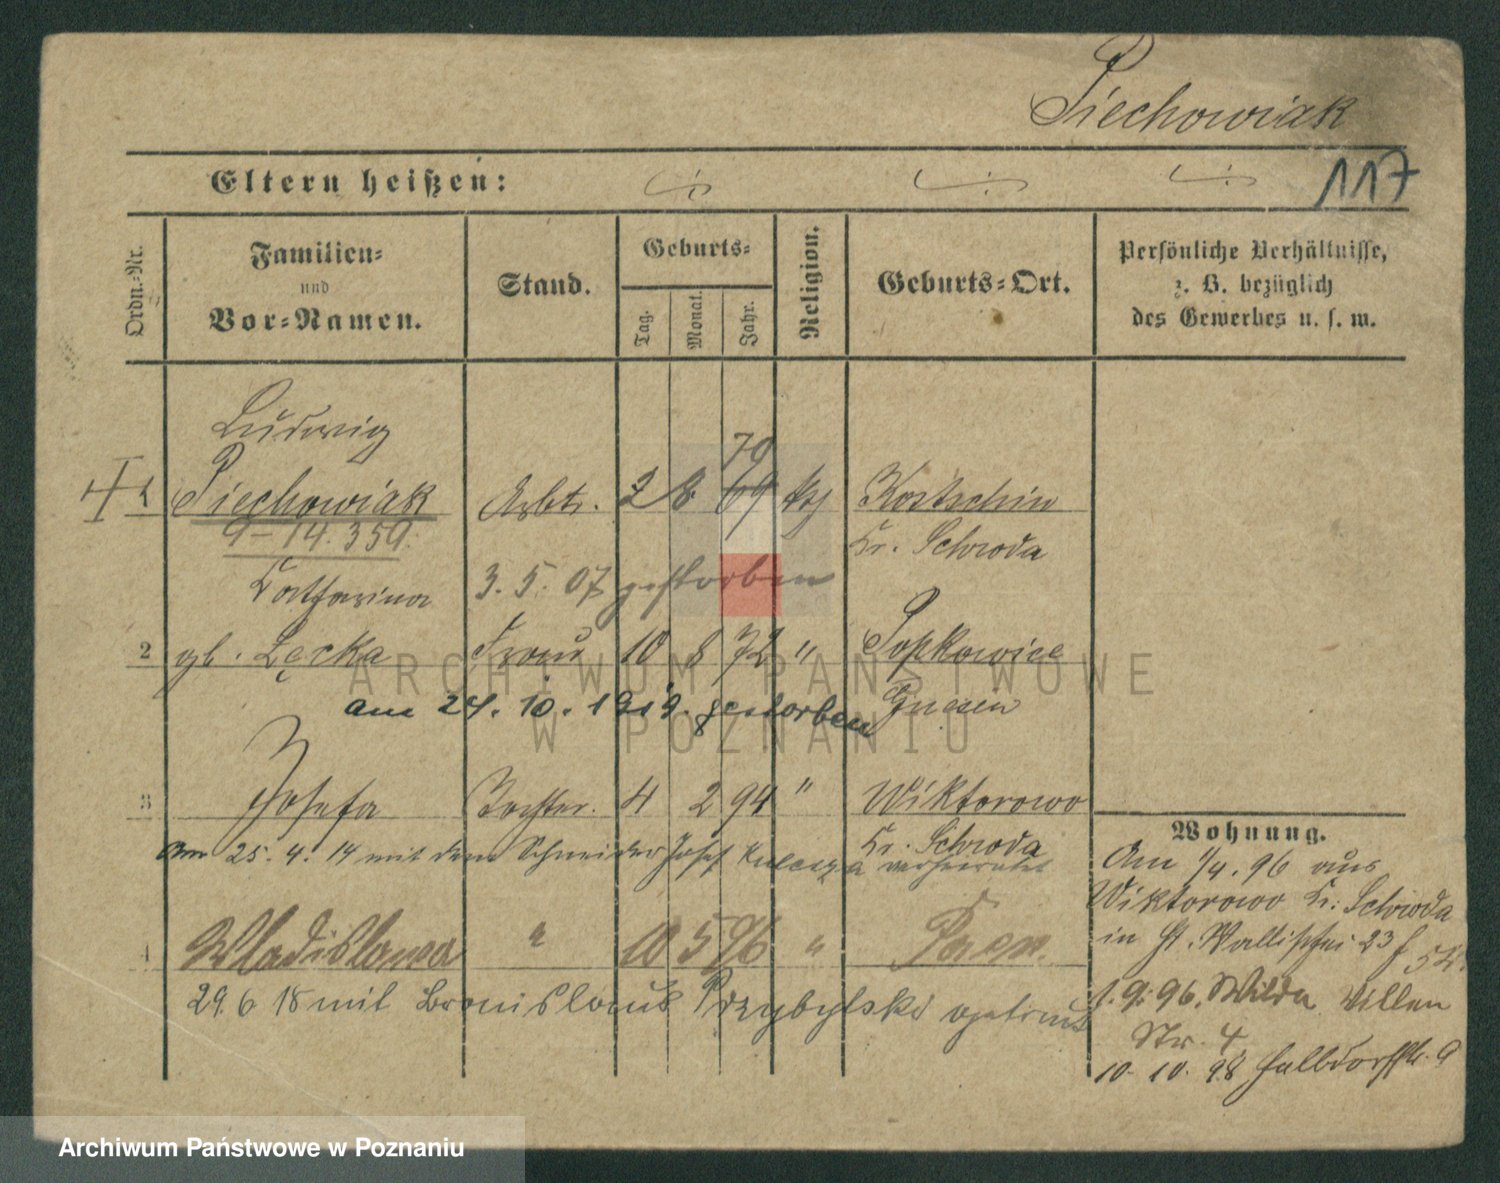 Piechowiak
117
Eltern heißen:
Ordn.-Nr.
Familien-
und
Vor-Namen.
Stand.
Geburts-
Tag.
Monat.
Jahr.
Religion.
Geburts-Ort.
Persönliche Verhältnisse,
z. B. bezüglich
des Gewerbes u. s. w.
Ludwig
70
1 Piechowiak Arbtr. 2 8 69 kth Kostschin
9-14.359. Kr. Schroda
Katharina 3. 5. 07 gestorben
2 gb. Łęcka Frau 10 8 72 " Popkowice
am 24. 10. 1919. gestorben Gnesen
3 Josefa Tochter. 4 2 94 " Wiktorowo
Kr. Schroda
Am 25. 4. 14 mit dem Schneider Josef Kulczga verheiratet
4 Wladislawa " 10 5 96 " Posen.
29. 6 18 mit Bronislaus Przybylski getraut
Wohnung.
Am 1/4. 96 aus
Wiktorowo Kr. Schroda
in St. Wallischei 23
1. 9. 96. Wilda Villen
Str. 4
10. 10. 98
ARCHIWUM PAŃSTWOWE
W POZNANIU
Archiwum Państwowe w Poznaniu